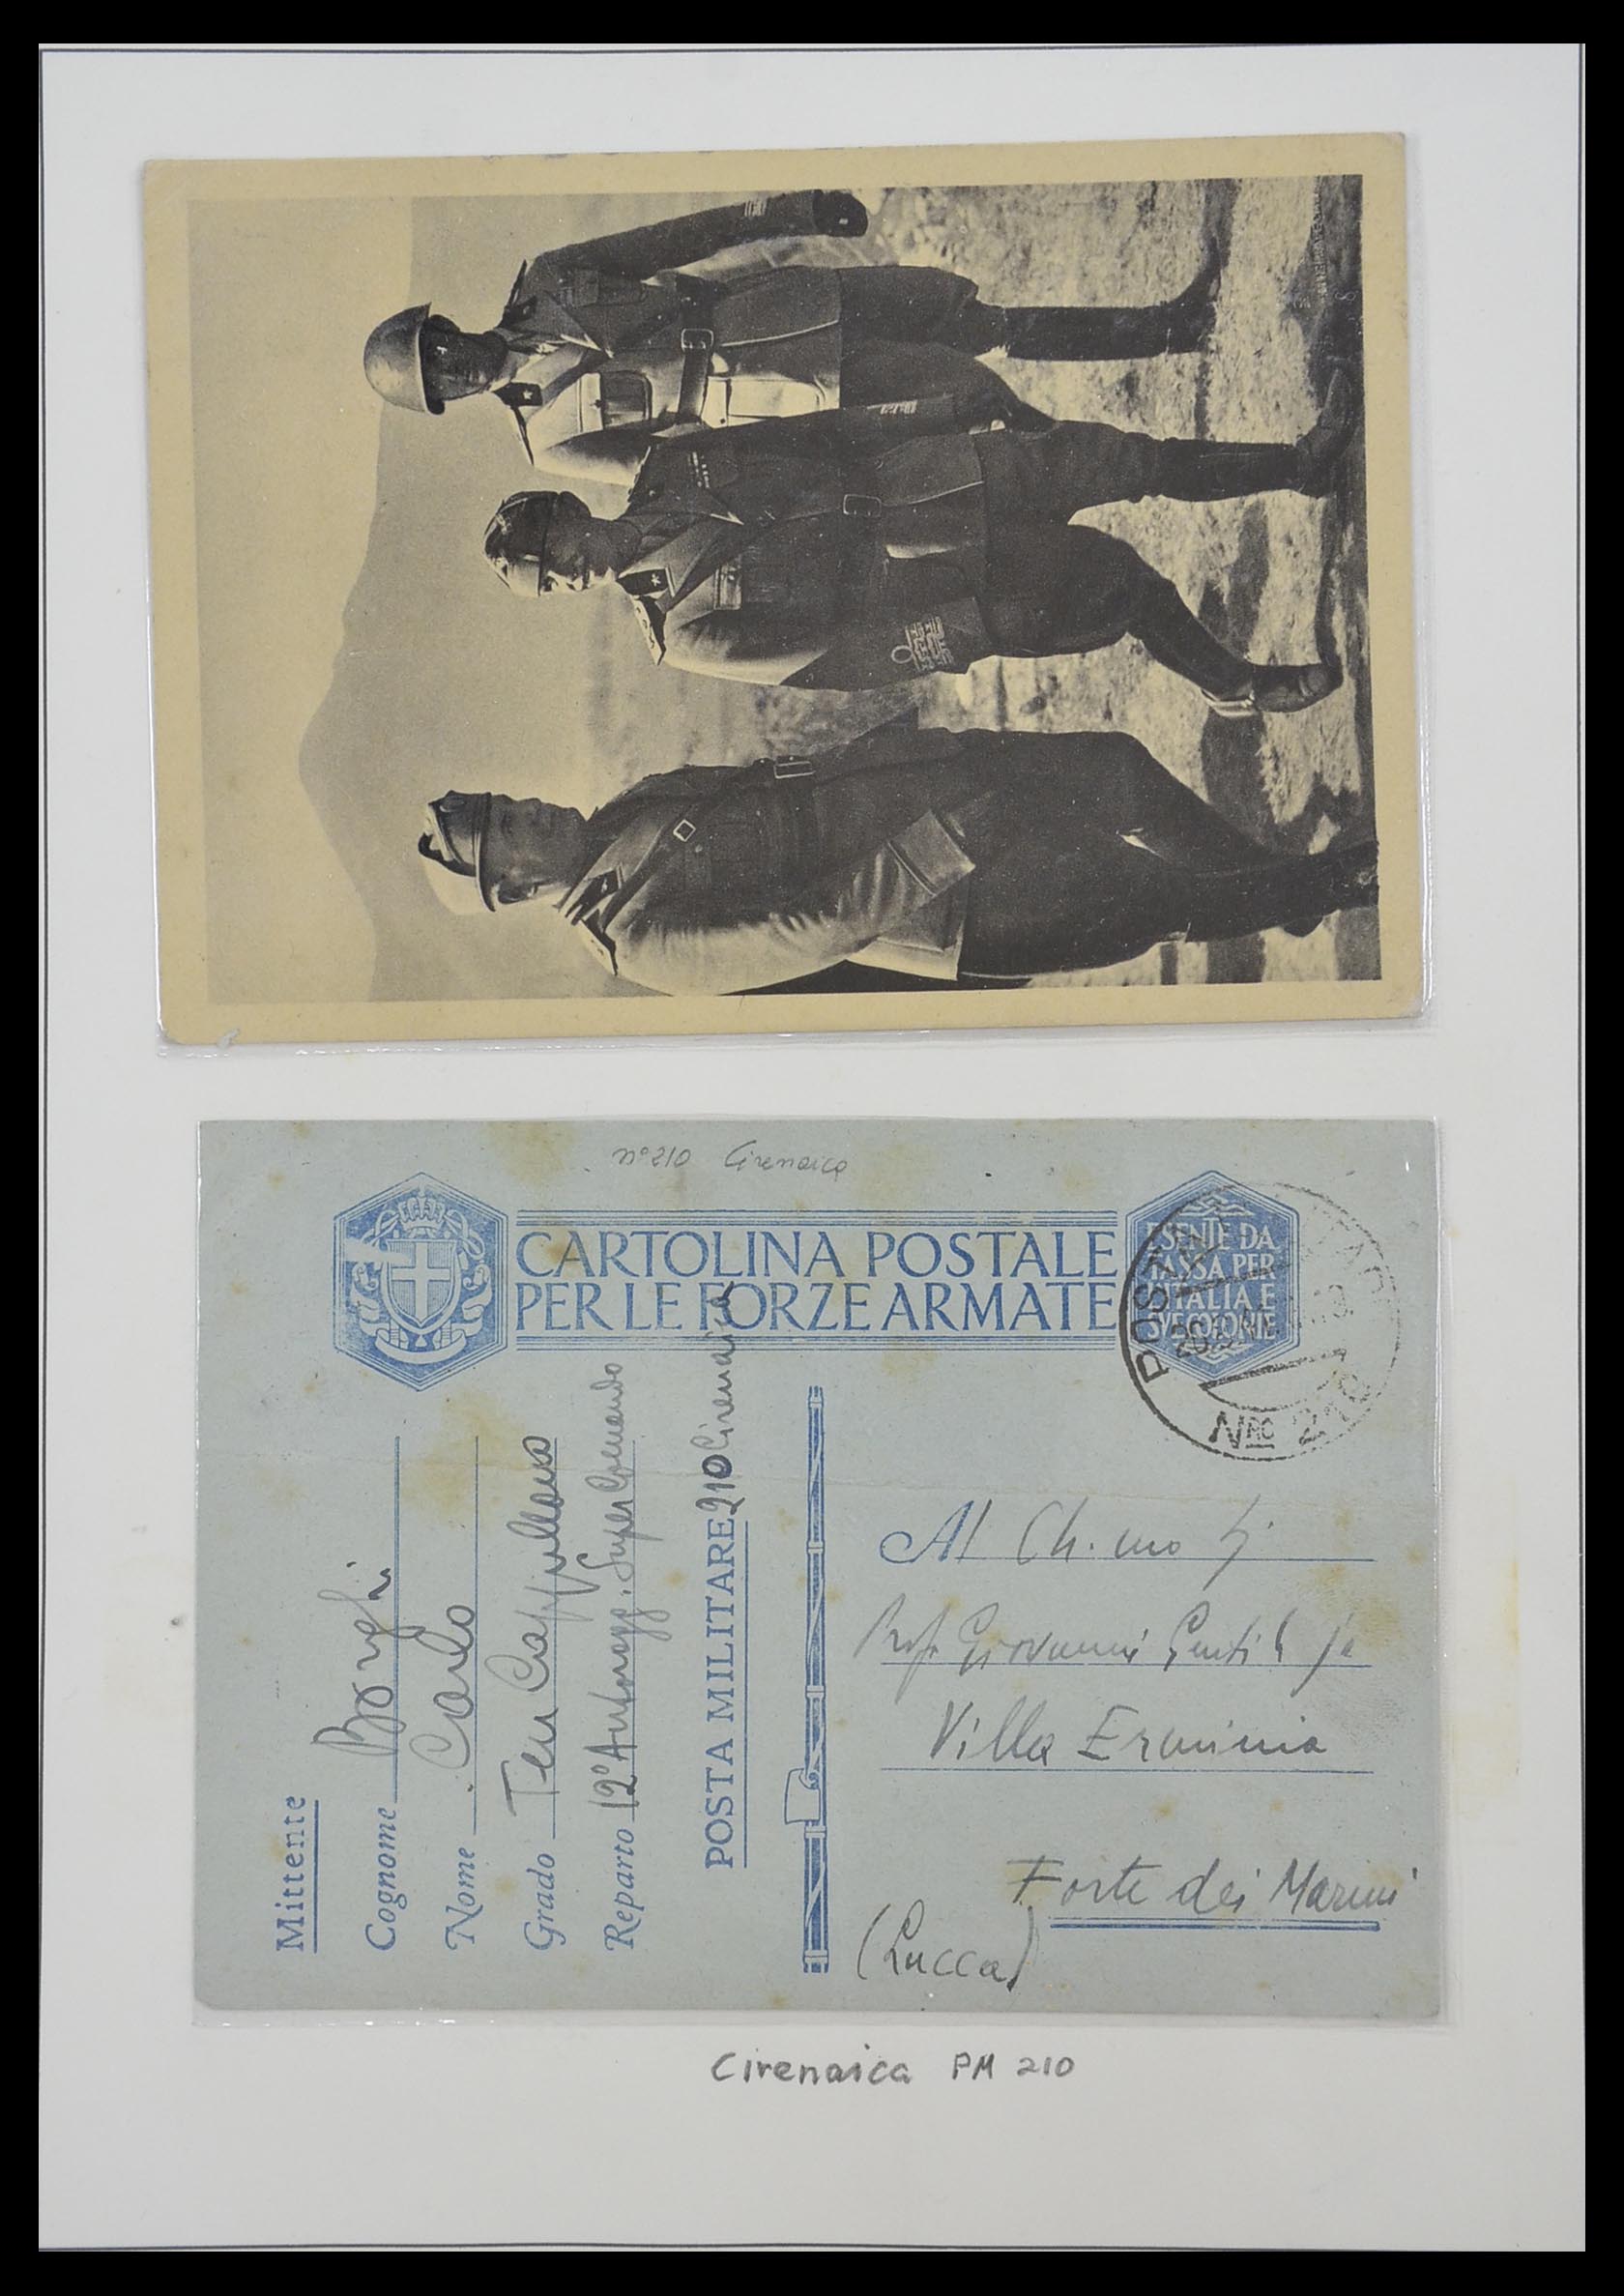 n° 210 Cirenaica
CARTOLINA POSTALE
PER LE FORZE ARMATE
ESENTE DA
TASSA PER
L'ITALIA E
SUE COLONIE
POSTA
Nro 210
Mittente
Cognome Borghi
Nome Carlo
Grado Ten Cappellano
Reparto 12° Autoragg. Super Comando
POSTA MILITARE 210 Cirenaica
Al Ch.mo
Prof. Giovanni Gentile
Villa Erminia
Forte dei Marmi
(Lucca)
Cirenaica PM 210